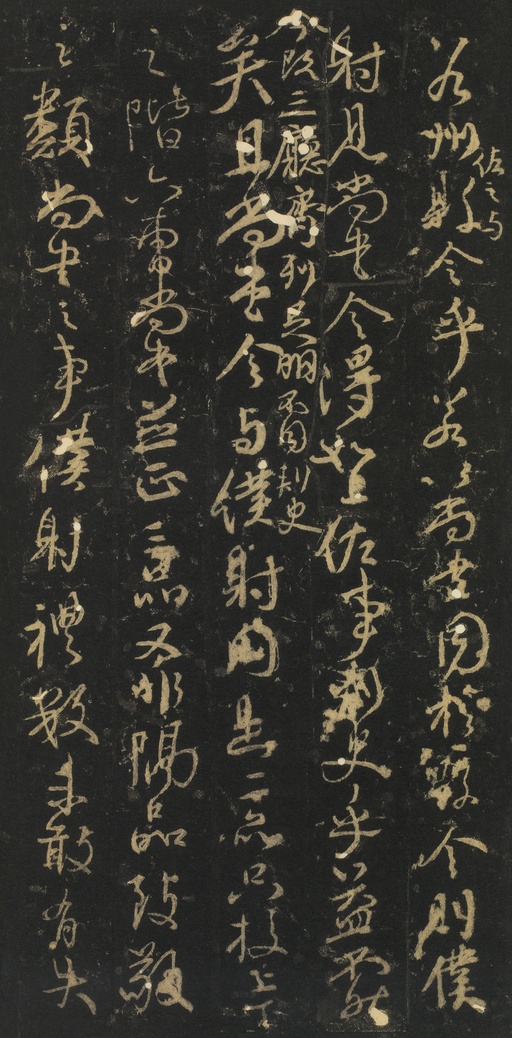 若州縣令乎若以尚書同於縣令則僕
佐之与
射見尚書令得如上佐事刺史乎益不然
今既三廳齊列足明不同刺史
矣且尚書令与僕射同是二品只校上下
之階六曹尚書並正三品又非隔品致敬
之類尚書之事僕射禮數未敢有失